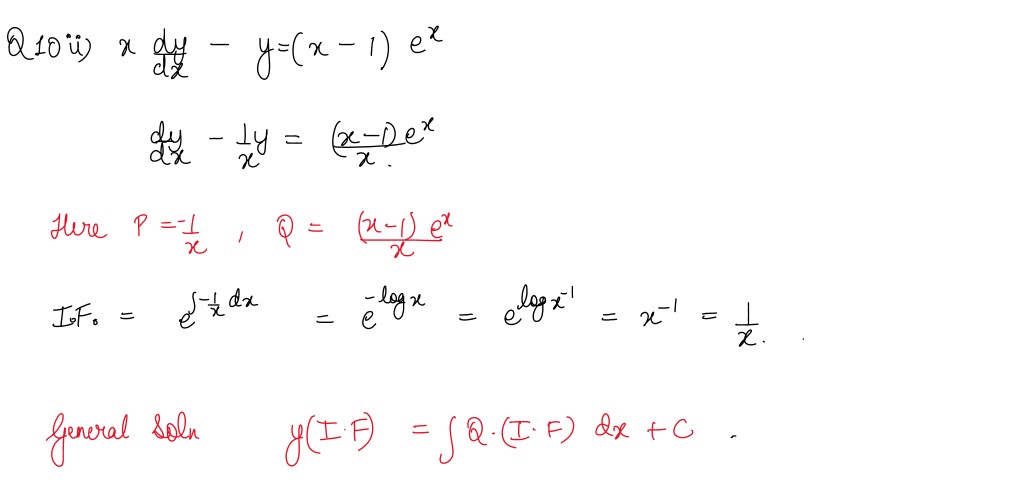 Q10 ii) x dy/dx - y = (x - 1) e^x
dy/dx - 1/x y = (x-1) e^x / x.
Here P = -1/x , Q = (x-1) e^x / x
I.F. = e^∫-1/x dx = e^-log x = e^log x^-1 = x^-1 = 1/x.
General Soln y(I.F) = ∫Q.(I.F) dx + C .